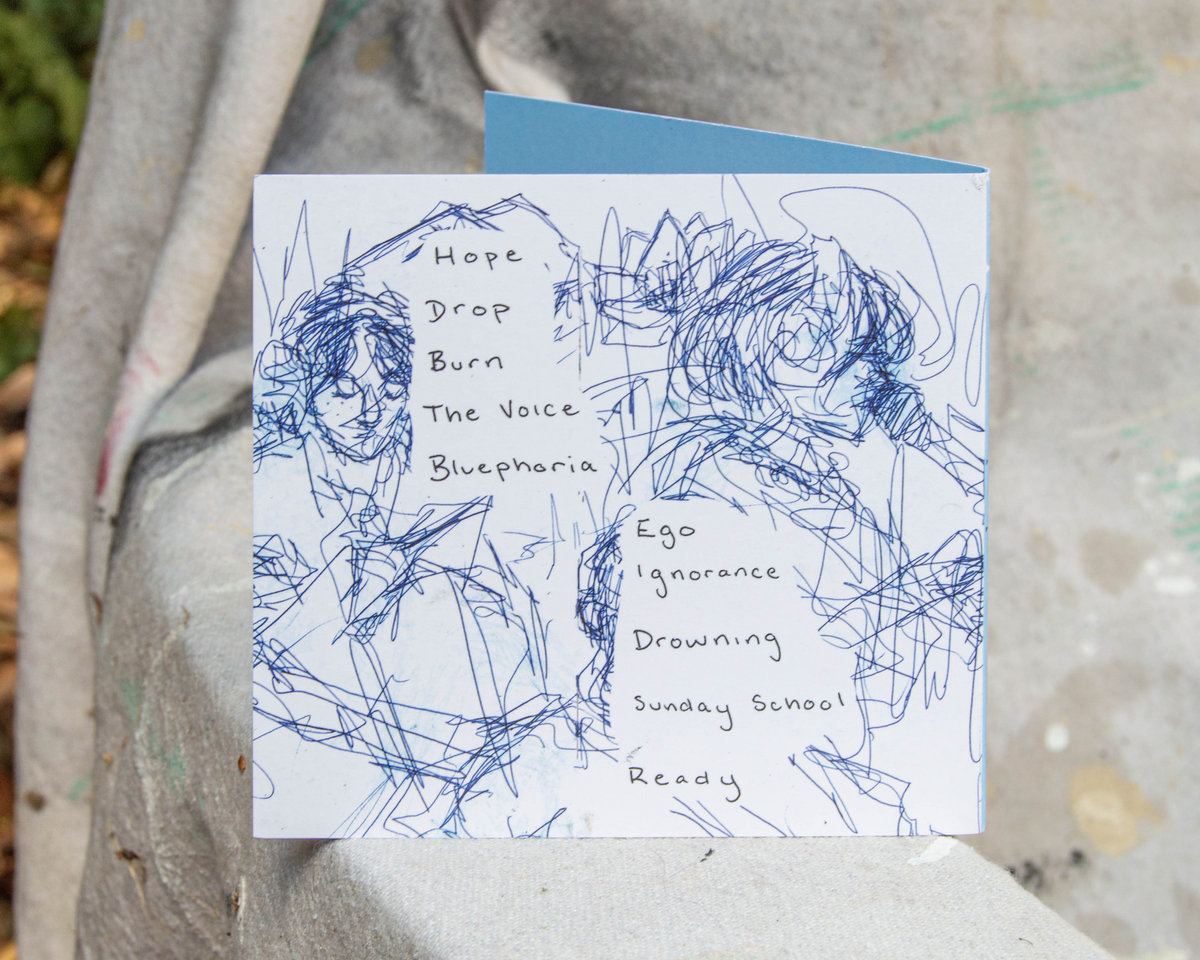 Hope
Drop
Burn
The Voice
Bluephoria
Ego
Ignorance
Drowning
Sunday School
Ready